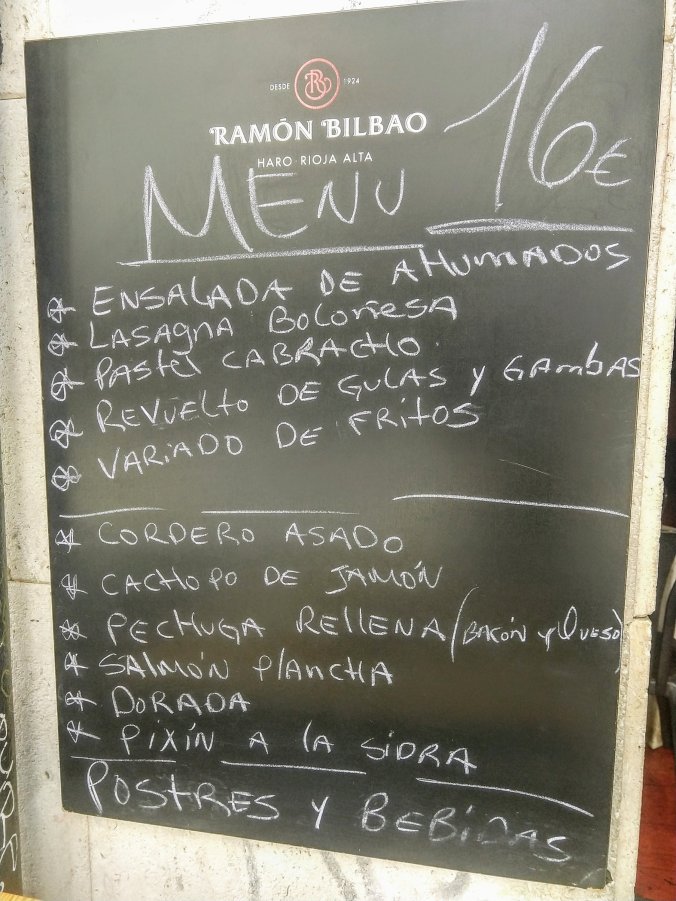 DESDE 1924
RAMÓN BILBAO
HARO · RIOJA ALTA
MENU 16€
* ENSALADA DE AHUMADOS
* LASAGNA BOLOÑESA
* PASTEL CABRACHO
* REVUELTO DE GULAS y GAMBAS
* VARIADO DE FRITOS
* CORDERO ASADO
* CACHOPO DE JAMÓN
* PECHUGA RELLENA (BACÓN y QUESO)
* SALMÓN PLANCHA
* DORADA
* PIXÍN A LA SIDRA
POSTRES Y BEBIDAS